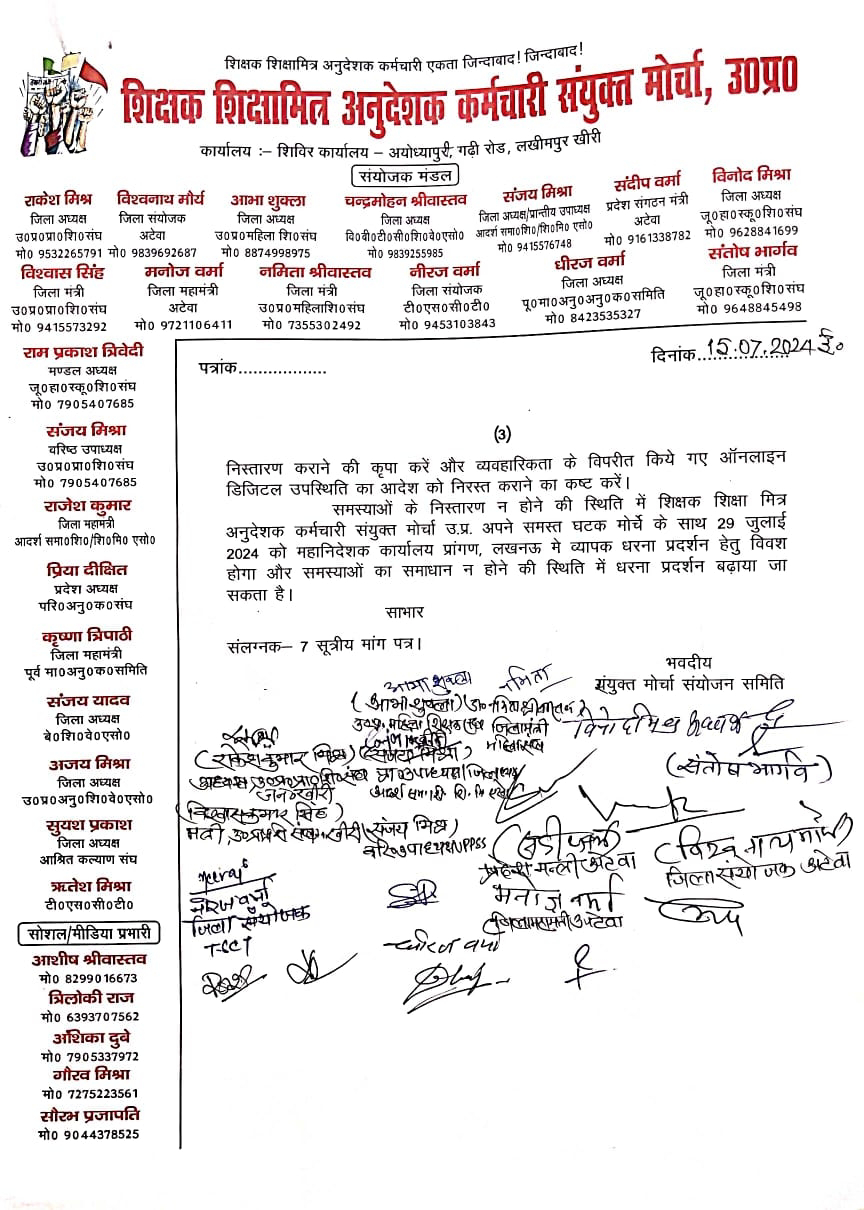 शिक्षक शिक्षामित्र अनुदेशक कर्मचारी एकता जिन्दाबाद! जिन्दाबाद!
शिक्षक शिक्षामित्र अनुदेशक कर्मचारी संयुक्त मोर्चा, उ०प्र०
कार्यालय :– शिविर कार्यालय – अयोध्यापुरी, गढ़ी रोड, लखीमपुर खीरी
संयोजक मंडल
राकेश मिश्र
जिला अध्यक्ष
उ०प्र०प्रा०शि०संघ
मो० 9532265791
विश्वनाथ मौर्य
जिला संयोजक
अटेवा
मो० 9839692687
आभा शुक्ला
जिला अध्यक्ष
उ०प्र०महिला शि०संघ
मो० 8874998975
चन्द्रमोहन श्रीवास्तव
जिला अध्यक्ष
वि०बी०टी०सी०शि०वे०एसो०
मो० 9839255985
संजय मिश्रा
जिला अध्यक्ष/प्रान्तीय उपाध्यक्ष
आदर्श समा०शि०/शि०मि० एसो०
मो० 9415576748
संदीप वर्मा
प्रदेश संगठन मंत्री
अटेवा
मो० 9161338782
विनोद मिश्रा
जिला अध्यक्ष
जू०हा०स्कू०शि०संघ
मो० 9628841699
विश्वास सिंह
जिला मंत्री
उ०प्र०प्रा०शि०संघ
मो० 9415573292
मनोज वर्मा
जिला महामंत्री
अटेवा
मो० 9721106411
नमिता श्रीवास्तव
जिला मंत्री
उ०प्र०महिलाशि०संघ
मो० 7355302492
नीरज वर्मा
जिला संयोजक
टी०एस०सी०टी०
मो० 9453103843
धीरज वर्मा
जिला अध्यक्ष
पू०मा०अनु०अनु०क०समिति
मो० 8423535327
संतोष भार्गव
जिला मंत्री
जू०हा०स्कू०शि०संघ
मो० 9648845498
राम प्रकाश त्रिवेदी
मण्डल अध्यक्ष
जू०हा०स्कू०शि०संघ
मो० 7905407685
संजय मिश्रा
वरिष्ठ उपाध्यक्ष
उ०प्र०प्रा०शि०संघ
मो० 7905407685
राजेश कुमार
जिला महामंत्री
आदर्श समा०शि०/शि०मि० एसो०
प्रिया दीक्षित
प्रदेश अध्यक्ष
परि०अनु०क०संघ
कृष्णा त्रिपाठी
जिला महामंत्री
पूर्व मा०अनु०क०समिति
संजय यादव
जिला अध्यक्ष
बे०शि०वे०एसो०
अजय मिश्रा
जिला अध्यक्ष
उ०प्र०अनु०शि०वे०एसो०
सुयश प्रकाश
जिला अध्यक्ष
आश्रित कल्याण संघ
ऋतेश मिश्रा
टी०एस०सी०टी०
सोशल/मीडिया प्रभारी
आशीष श्रीवास्तव
मो० 8299016673
त्रिलोकी राज
मो० 6393707562
अंशिका दुबे
मो० 7905337972
गौरव मिश्रा
मो० 7275223561
सौरभ प्रजापति
मो० 9044378525
पत्रांक...................
दिनांक 15.07.2024 ई०
(3)
निस्तारण कराने की कृपा करें और व्यवहारिकता के विपरीत किये गए ऑनलाइन
डिजिटल उपस्थिति का आदेश को निरस्त कराने का कष्ट करें।
समस्याओं के निस्तारण न होने की स्थिति में शिक्षक शिक्षा मित्र
अनुदेशक कर्मचारी संयुक्त मोर्चा उ.प्र. अपने समस्त घटक मोर्चे के साथ 29 जुलाई
2024 को महानिदेशक कार्यालय प्रांगण, लखनऊ मे व्यापक धरना प्रदर्शन हेतु विवश
होगा और समस्याओं का समाधान न होने की स्थिति में धरना प्रदर्शन बढ़ाया जा
सकता है।
साभार
संलग्नक– 7 सूत्रीय मांग पत्र।
भवदीय
संयुक्त मोर्चा संयोजन समिति
आभा शुक्ला
नमिता
(आभा शुक्ला)
(राकेश कुमार मिश्र)
(संजय मिश्रा)
(संतोष भार्गव)
(विश्वास कुमार सिंह)
(संजय मिश्र)
वरि० उपाध्यक्ष UPPSS
प्रदेश मन्त्री अटेवा
(विश्वनाथ मौर्य)
जिला संयोजक अटेवा
Neeraj
नीरज वर्मा
जिला संयोजक
TSCT
मनोज वर्मा
जिला महामंत्री अटेवा
धीरज वर्मा